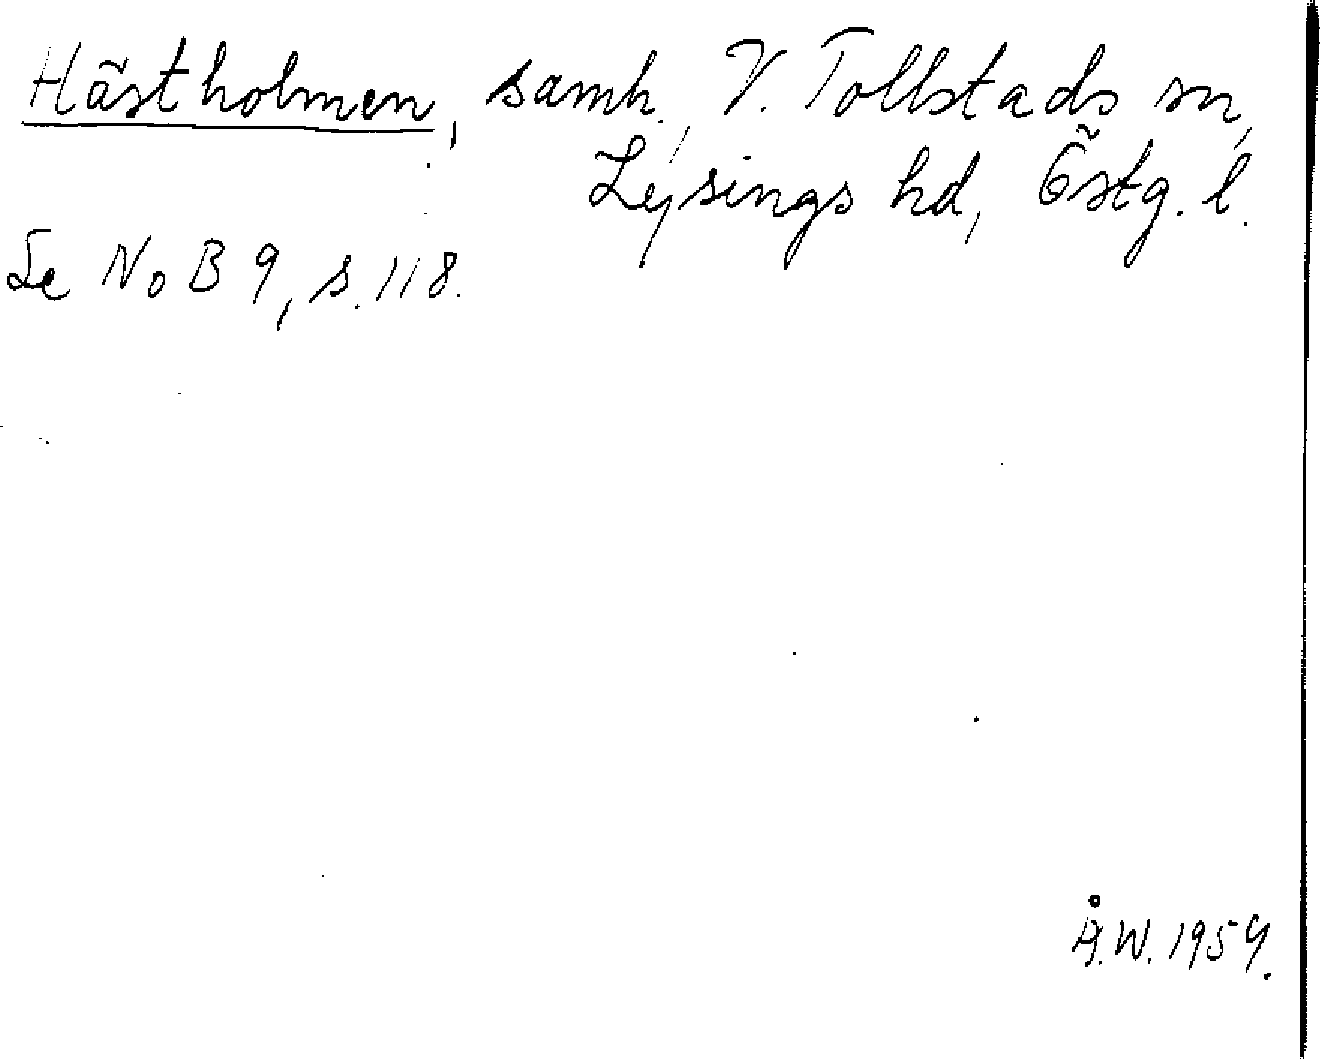 Hästholmen, samh., V. Tollstads sn,
Lysings hd, Östg. l.
Se NoB 9, s. 118.
Å.W. 1954.